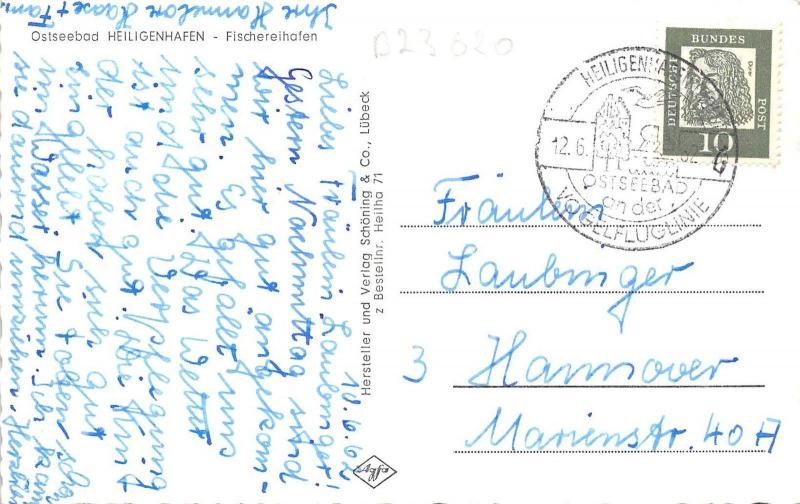 Ostseebad HEILIGENHAFEN - Fischereihafen
B23620
10.6.62
Liebes Fräulein Laubinger!
Gestern Nachmittag sind
wir hier gut angekom-
men. Es gefällt uns
sehr gut. Das Wetter
ist auch gut. Die
haben sich gut
eingelebt. Sie toben schon
im Wasser herum. Ich kann
sie dauernd umziehen. Herzlichst
Ihre Hannelore Haase + Fam.
Hersteller und Verlag Schöning & Co., Lübeck
z Bestellnr. Heilha 71
Agfa
HEILIGENHAFEN
12.6.62
OSTSEEBAD
an der
VOGELFLUGLINIE
DEUTSCHE BUNDESPOST
Dürer
10
Fräulein
Laubinger
3 Hannover
Marienstr. 40 A